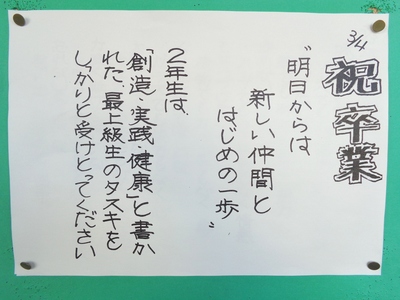 3/4
祝卒業
"明日からは
新しい仲間と
はじめの一歩"
2年生は、
「創造・実践・健康」と書か
れた、最上級生のタスキを
しっかりと受けとってください